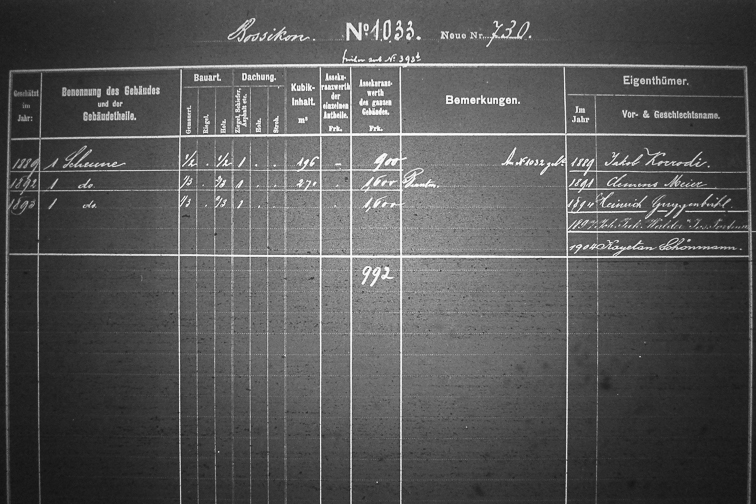 Bossikon. No 1033. Neue Nr. 730.
früher sub No. 393d
Geschätzt im Jahr:
Benennung des Gebäudes und der Gebäudetheile.
Bauart.
Gemauert. Riegel. Holz.
Dachung.
Ziegel, Schiefer, Asphalt etc. Holz. Stroh.
Kubik-Inhalt. m³
Assekuranzwerth der einzelnen Antheile. Frk.
Assekuranzwerth des ganzen Gebäudes. Frk.
Bemerkungen.
Eigenthümer.
Im Jahr
Vor- & Geschlechtsname.
1889 1 Scheune 1/2 . 1/2 1 . . 196 – 900 An No 1032 geb. 1889 Jakob Korrodi.
1892 1 do. 1/3 . 2/3 1 . . 270 . 1,600 1891 Clemens Meier
1893 1 do. 1/3 . 2/3 1 . . . . 1,600 Heinrich
1904 Kayetan Schönmann.
992